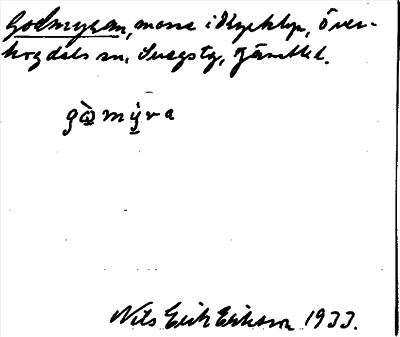 Godmyran, mosse i Överhogdals sn, Svegs tg, Jämtl.
gòmýra
Nils Erik Erikson 1933.